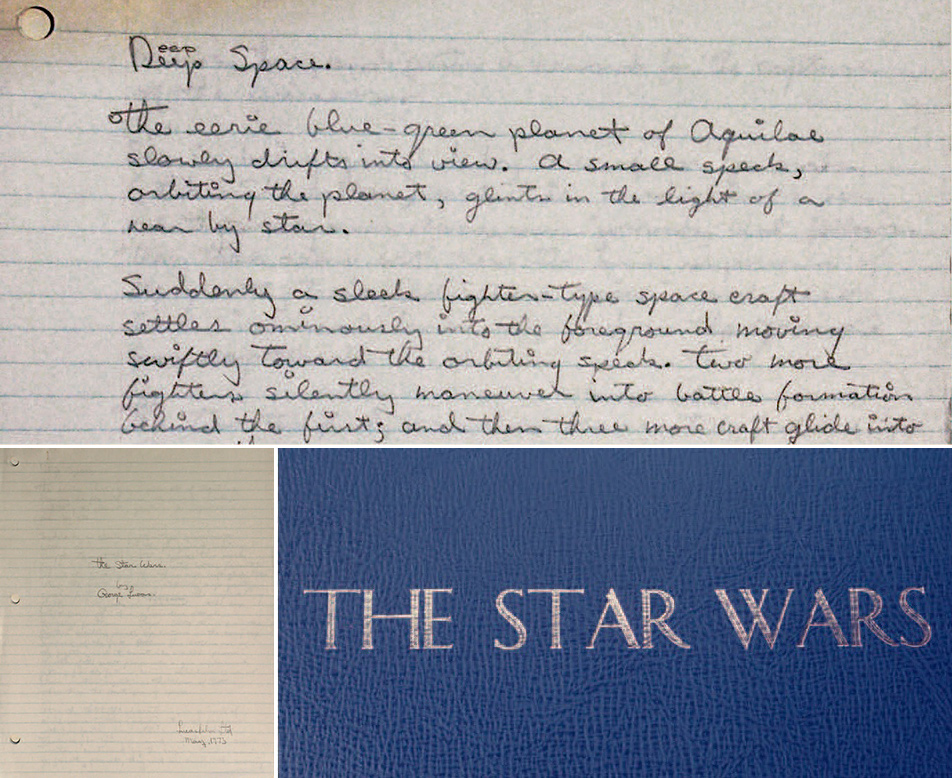 Deep Space.
The eerie blue-green planet of Aquilae
slowly drifts into view. A small speck,
orbiting the planet, glints in the light of a
near by star.
Suddenly a sleek fighter-type space craft
settles ominously into the foreground moving
swiftly toward the orbiting speck. Two more
fighters silently maneuver into battle formation
behind the first; and then three more craft glide into
The Star Wars.
by
George Lucas.
Lucasfilm Ltd
May, 1973
THE STAR WARS